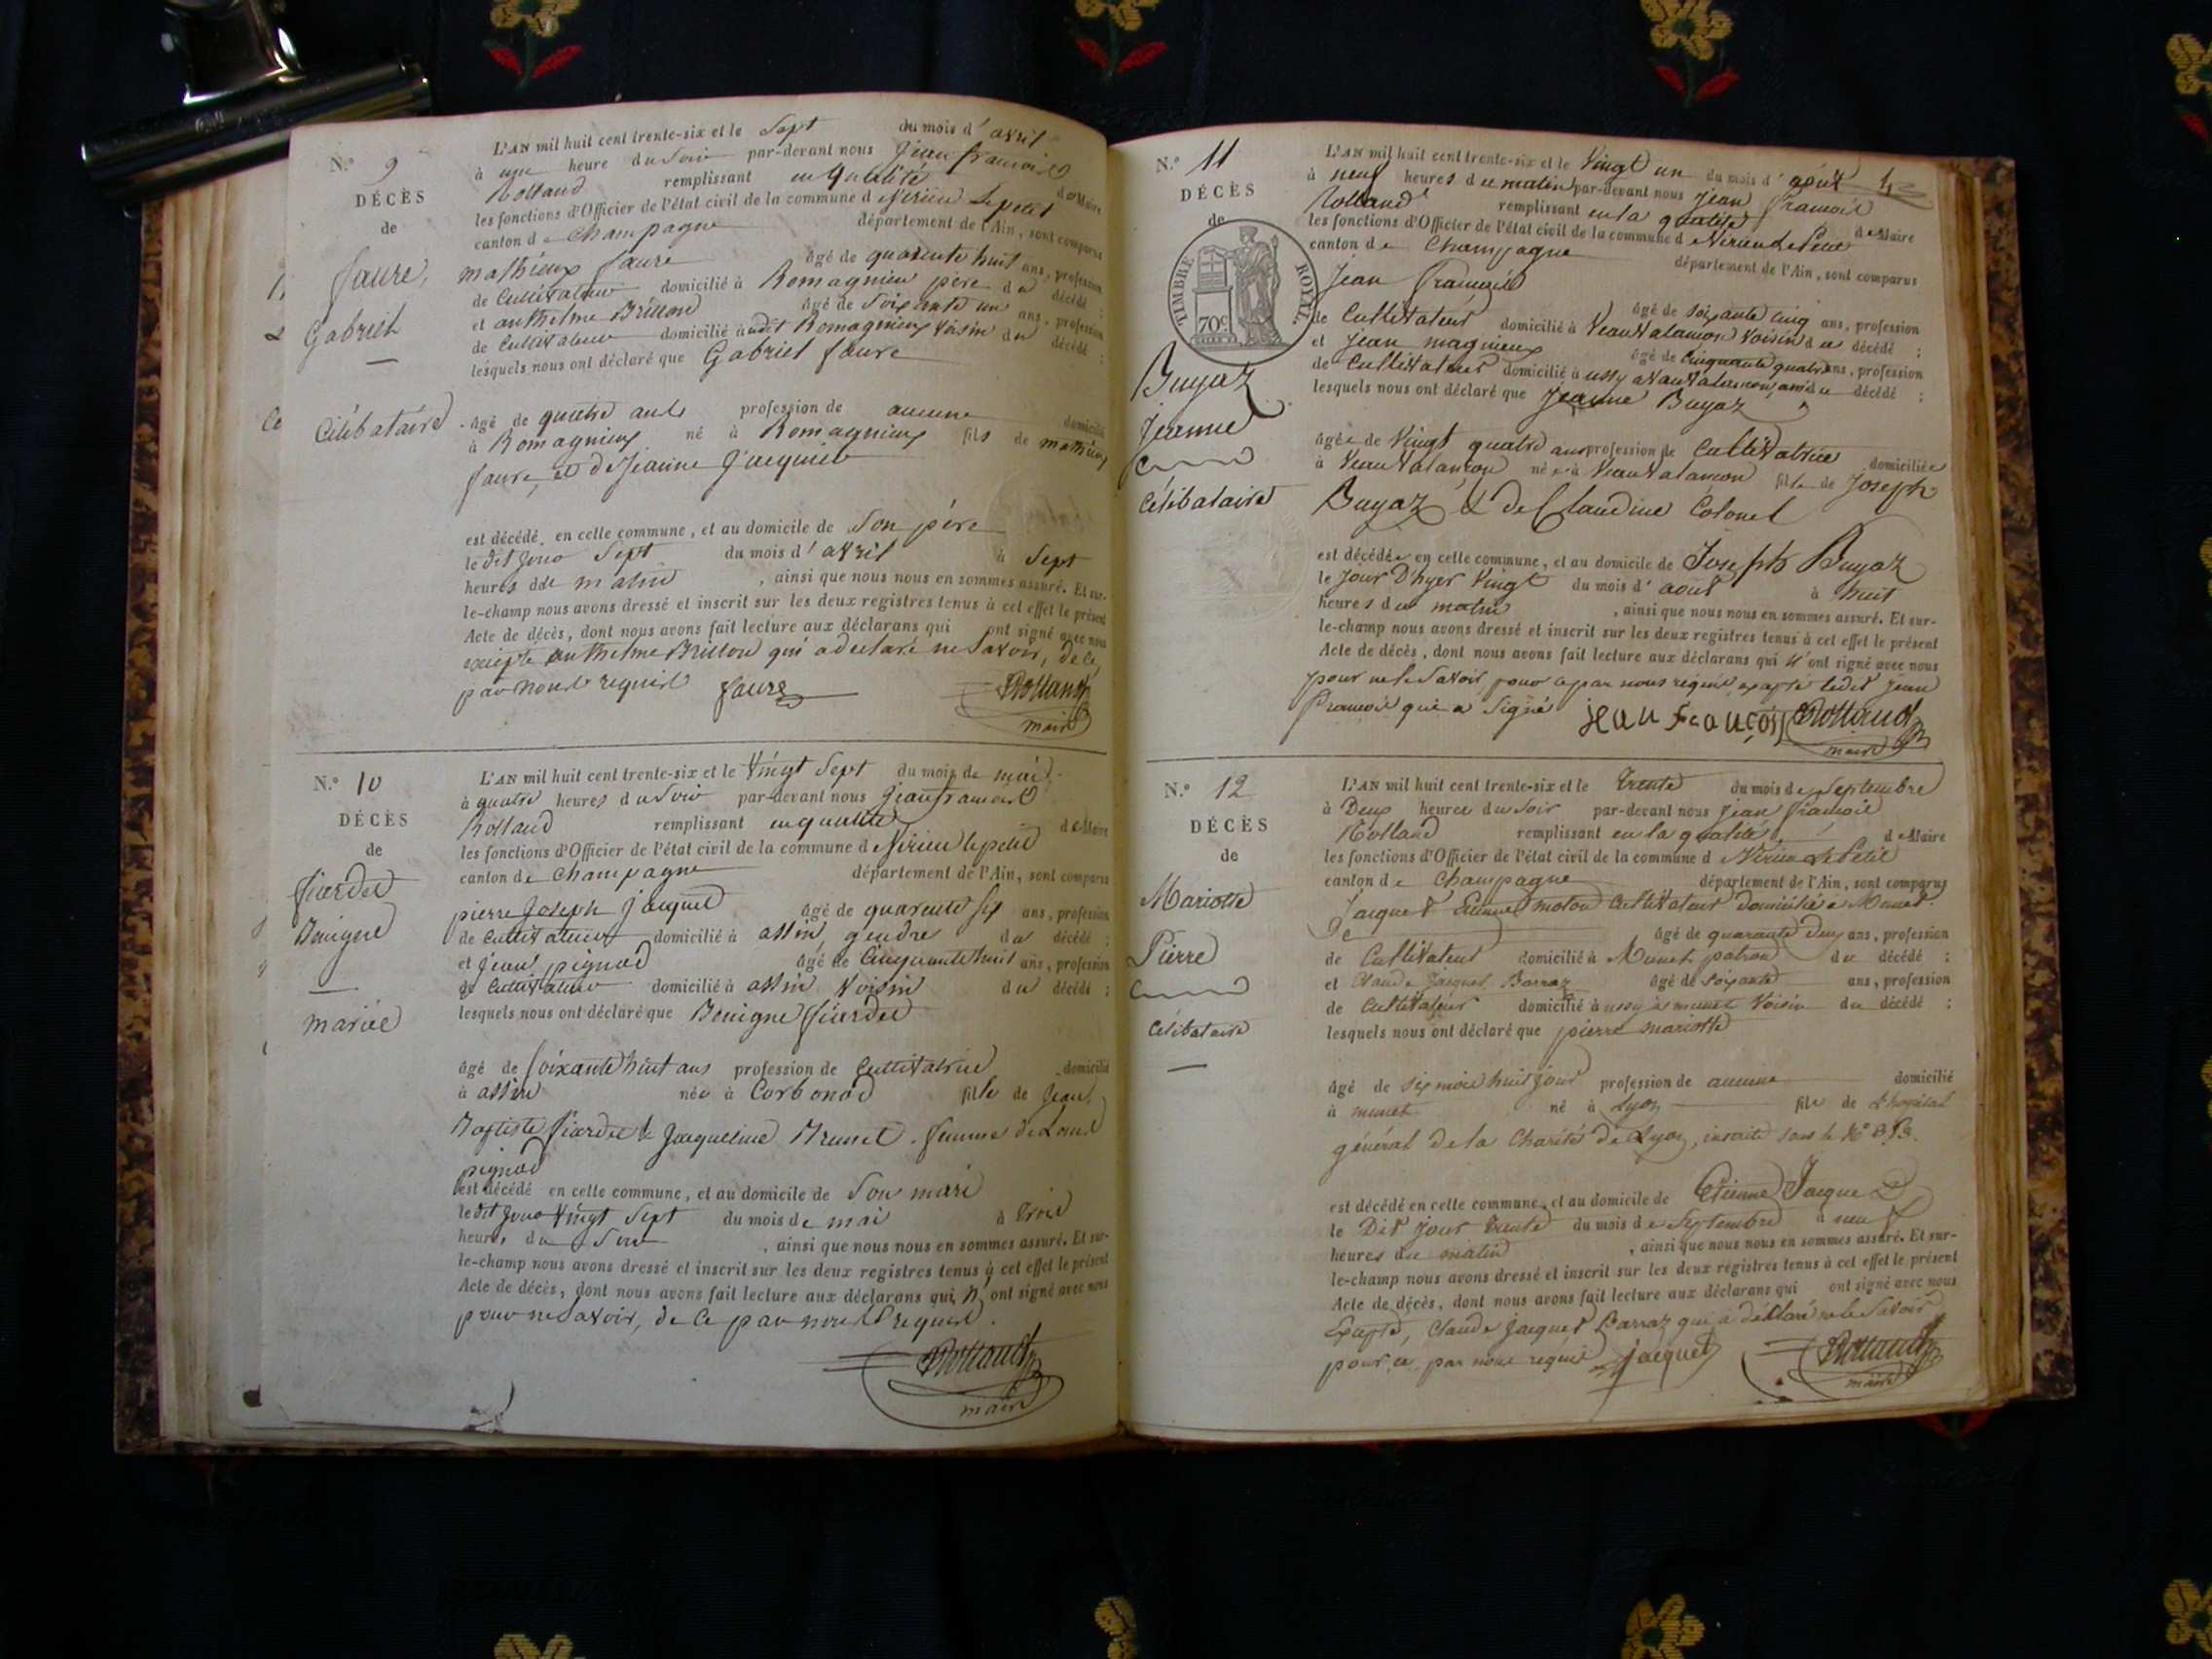 N.° 9
DÉCÈS
de
faure,
Gabriel
Célibataire
L'AN mil huit cent trente-six et le Sept du mois d' avril
à une heure du Soir par-devant nous Jean francois
Rolland remplissant en qualité de Maire
les fonctions d'Officier de l'état civil de la commune d Virieu Le petit
canton de Champagne département de l'Ain, sont comparus
mathieux faure âgé de quarente huit ans, profession
de Cultivateur domicilié à Romagnieu père du décédé ;
et anthelme Brillond âgé de Soixante un ans, profession
de Cultivateur domicilié audit Romagnieux voisin du décédé ;
lesquels nous ont déclaré que Gabriel faure
âgé de quatre ants profession de aucune domicilié
à Romagnieux né à Romagnieux fils de mathieux
faure, et de Jeanne Jacquier
est décédé en cette commune, et au domicile de Son père
le dit jour Sept du mois d' avril à Sept
heures du matin , ainsi que nous nous en sommes assuré. Et sur-
le-champ nous avons dressé et inscrit sur les deux registres tenus à cet effet le présent
Acte de décès, dont nous avons fait lecture aux déclarans qui ont signé avec nous
anthelme Brillon qui a déclaré ne Savoir, de ce
par nous requis faure Rolland
maire
N.° 10
DÉCÈS
de
fierdet
Benigne
mariée
L'AN mil huit cent trente-six et le Vingt Sept du mois de mai
à quatre heures du Soir par-devant nous Jean francois
Rolland remplissant en qualité de Maire
les fonctions d'Officier de l'état civil de la commune d Virieu le petit
canton de Champagne département de l'Ain, sont comparus
pierre Joseph Jacquet âgé de quarente six ans, profession
de Cultivateur domicilié à assin, gendre du décédé ;
et Jean pignod âgé de Cinquante huit ans, profession
de Cultivateur domicilié à assin Voisin du décédé ;
lesquels nous ont déclaré que Benigne fierdet
âgé de Soixante huit ans profession de Cultivatrice domicilié
à assin née à Corbonod fille de Jean,
Baptiste fierdet & Jacqueline Brunet. femme de Louis
pignod
est décédé en cette commune, et au domicile de Son mari
le dit jour Vingt Sept du mois de mai à trois
heures du Soir , ainsi que nous nous en sommes assuré. Et sur-
le-champ nous avons dressé et inscrit sur les deux registres tenus à cet effet le présent
Acte de décès, dont nous avons fait lecture aux déclarans qui n' ont signé avec nous
pour ne Savoir, de ce par nous requis.
Rolland
maire
N.° 11
DÉCÈS
de
TIMBRE ROYAL.
70c
Buyaz
Jeanne
Célibataire
L'AN mil huit cent trente-six et le Vingt un du mois d' août
à neuf heures du matin par-devant nous Jean francois
Rolland remplissant en la qualité de Maire
les fonctions d'Officier de l'état civil de la commune d Virieu Le Petit
canton de Champagne département de l'Ain, sont comparus
Jean François
âgé de soixante cinq ans, profession
de Cultivateur domicilié à Veauvalançon Voisin du décédé ;
et Jean magnieux âgé de Cinquante quatre ans, profession
de Cultivateur domicilié à ussy a Vauvalancon, ami du décédé ;
lesquels nous ont déclaré que Jeanne Buyaz
âgée de Vingt quatre ans profession de Cultivatrice domiciliée
à Veauvalançon née à Veauvalançon fille de Joseph
Buyaz & de Claudine Colonel
est décédée en cette commune, et au domicile de Joseph Buyaz
le Jour D'hyer Vingt du mois d' aout à huit
heures du matin , ainsi que nous nous en sommes assuré. Et sur-
le-champ nous avons dressé et inscrit sur les deux registres tenus à cet effet le présent
Acte de décès, dont nous avons fait lecture aux déclarans qui n' ont signé avec nous
pour ne le Savoir, pour ce par nous requis, expte ledit Jean
François qui a Signé Jean François Rolland
maire
N.° 12
DÉCÈS
de
Mariotte
Pierre
Célibataire
L'AN mil huit cent trente-six et le trente du mois de Septembre
à Deux heures du Soir par-devant nous Jean François
Rolland remplissant en la qualité de Maire
les fonctions d'Officier de l'état civil de la commune d Virieu Le Petit
canton de Champagne département de l'Ain, sont comparus
Jacquet Etienne moton Cultivateur Domicilié a Munet.
De âgé de quarante Deux ans, profession
de Cultivateur domicilié à Munet, patron du décédé ;
et Claude Jacquet Barraz âgé de Soixante ans, profession
de Cultivateur domicilié à ussy à munet Voisin du décédé ;
lesquels nous ont déclaré que pierre mariotte
âgé de six mois huit Jour profession de aucune domicilié
à munet né à Lyon fils de L'hopital
général de la Charité de Lyon, inscrit sous le N°
est décédé en cette commune, et au domicile de Etienne Jacquet
le Dit Jour trente du mois de Septembre à neuf
heures du matin , ainsi que nous nous en sommes assuré. Et sur-
le-champ nous avons dressé et inscrit sur les deux registres tenus à cet effet le présent
Acte de décès, dont nous avons fait lecture aux déclarans qui ont signé avec nous
Expté, Claude Jacquet Barraz qui a déclaré ne le Savoir
pour ce par nous requis jacquet Rolland
maire